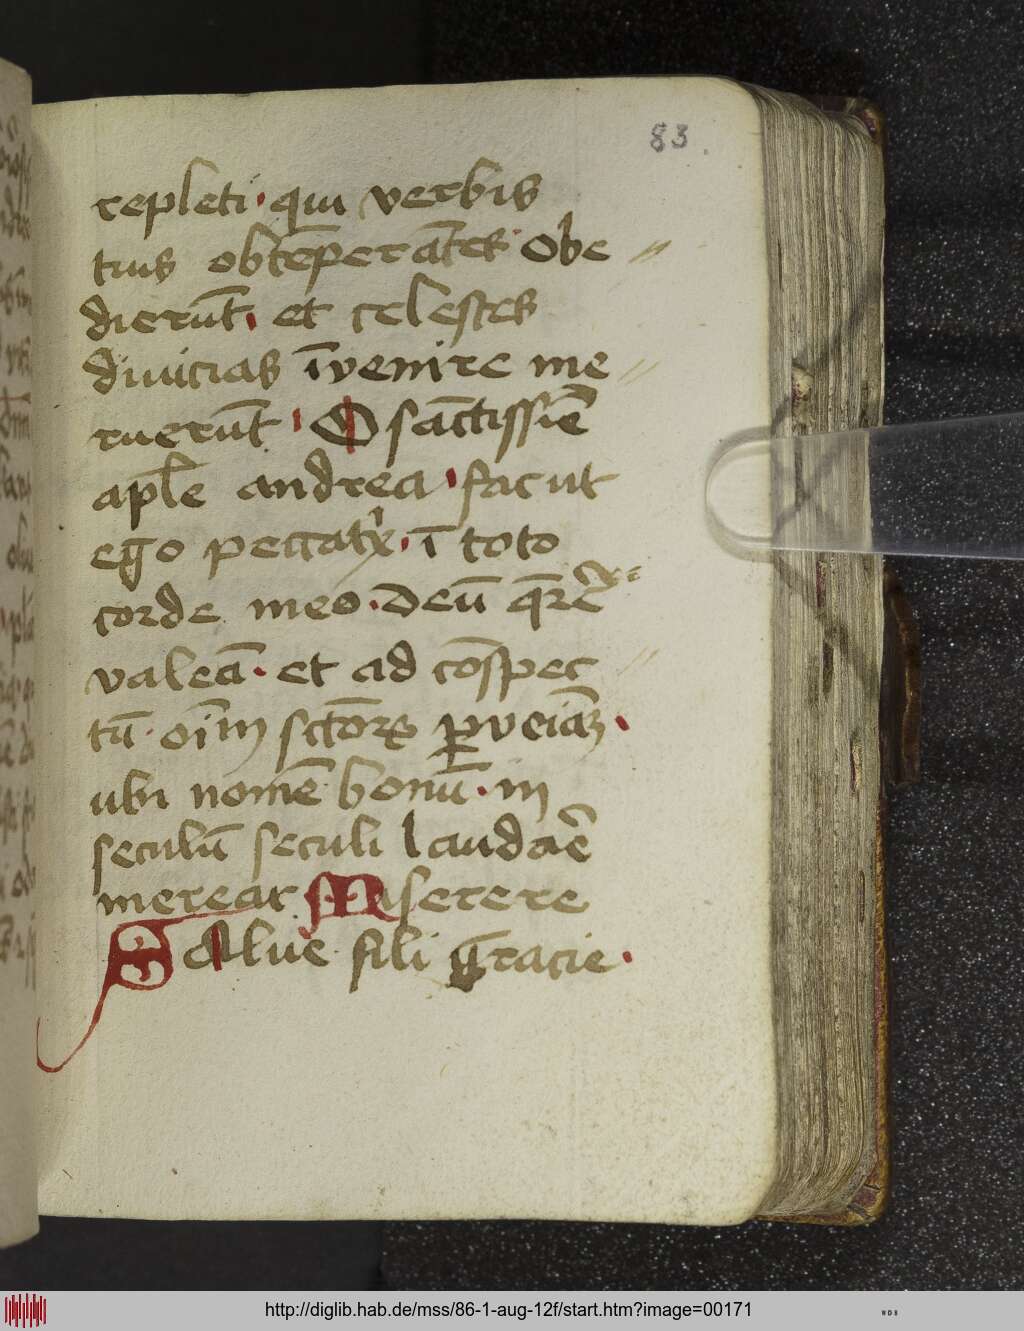 83
repleti qui verbis
tuis obtēperātes obe
dierūt et celestes
diuicias īvenire me
ruerūt O sāctissīē
aple andrea fac ut
ego peccatx ī toto
corde meo deū qrē
valeā et ad cōspec
tū oīm sctōrꝝ ꝑveiā
ubi nomē bonū in
seculū seculi laudaē
merear Miserere
Salue fili gracie
http://diglib.hab.de/mss/86-1-aug-12f/start.htm?image=00171